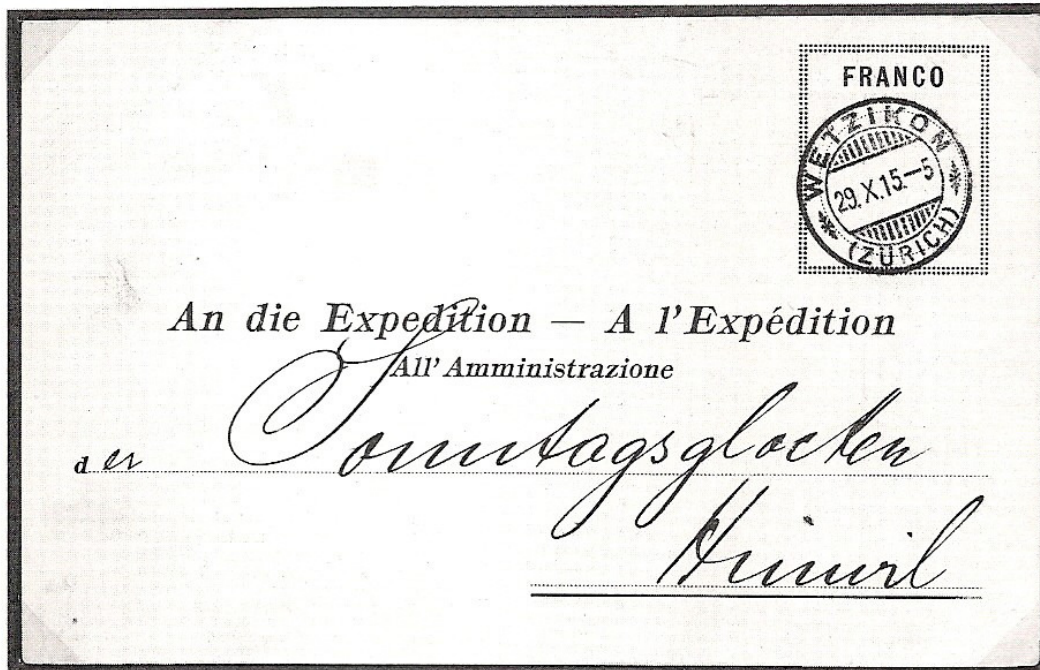 FRANCO
WETZIKON
29.X.15.–5
(ZÜRICH)
An die Expedition — A l'Expédition
All' Amministrazione
der Sonntagsglocken
Hinwil